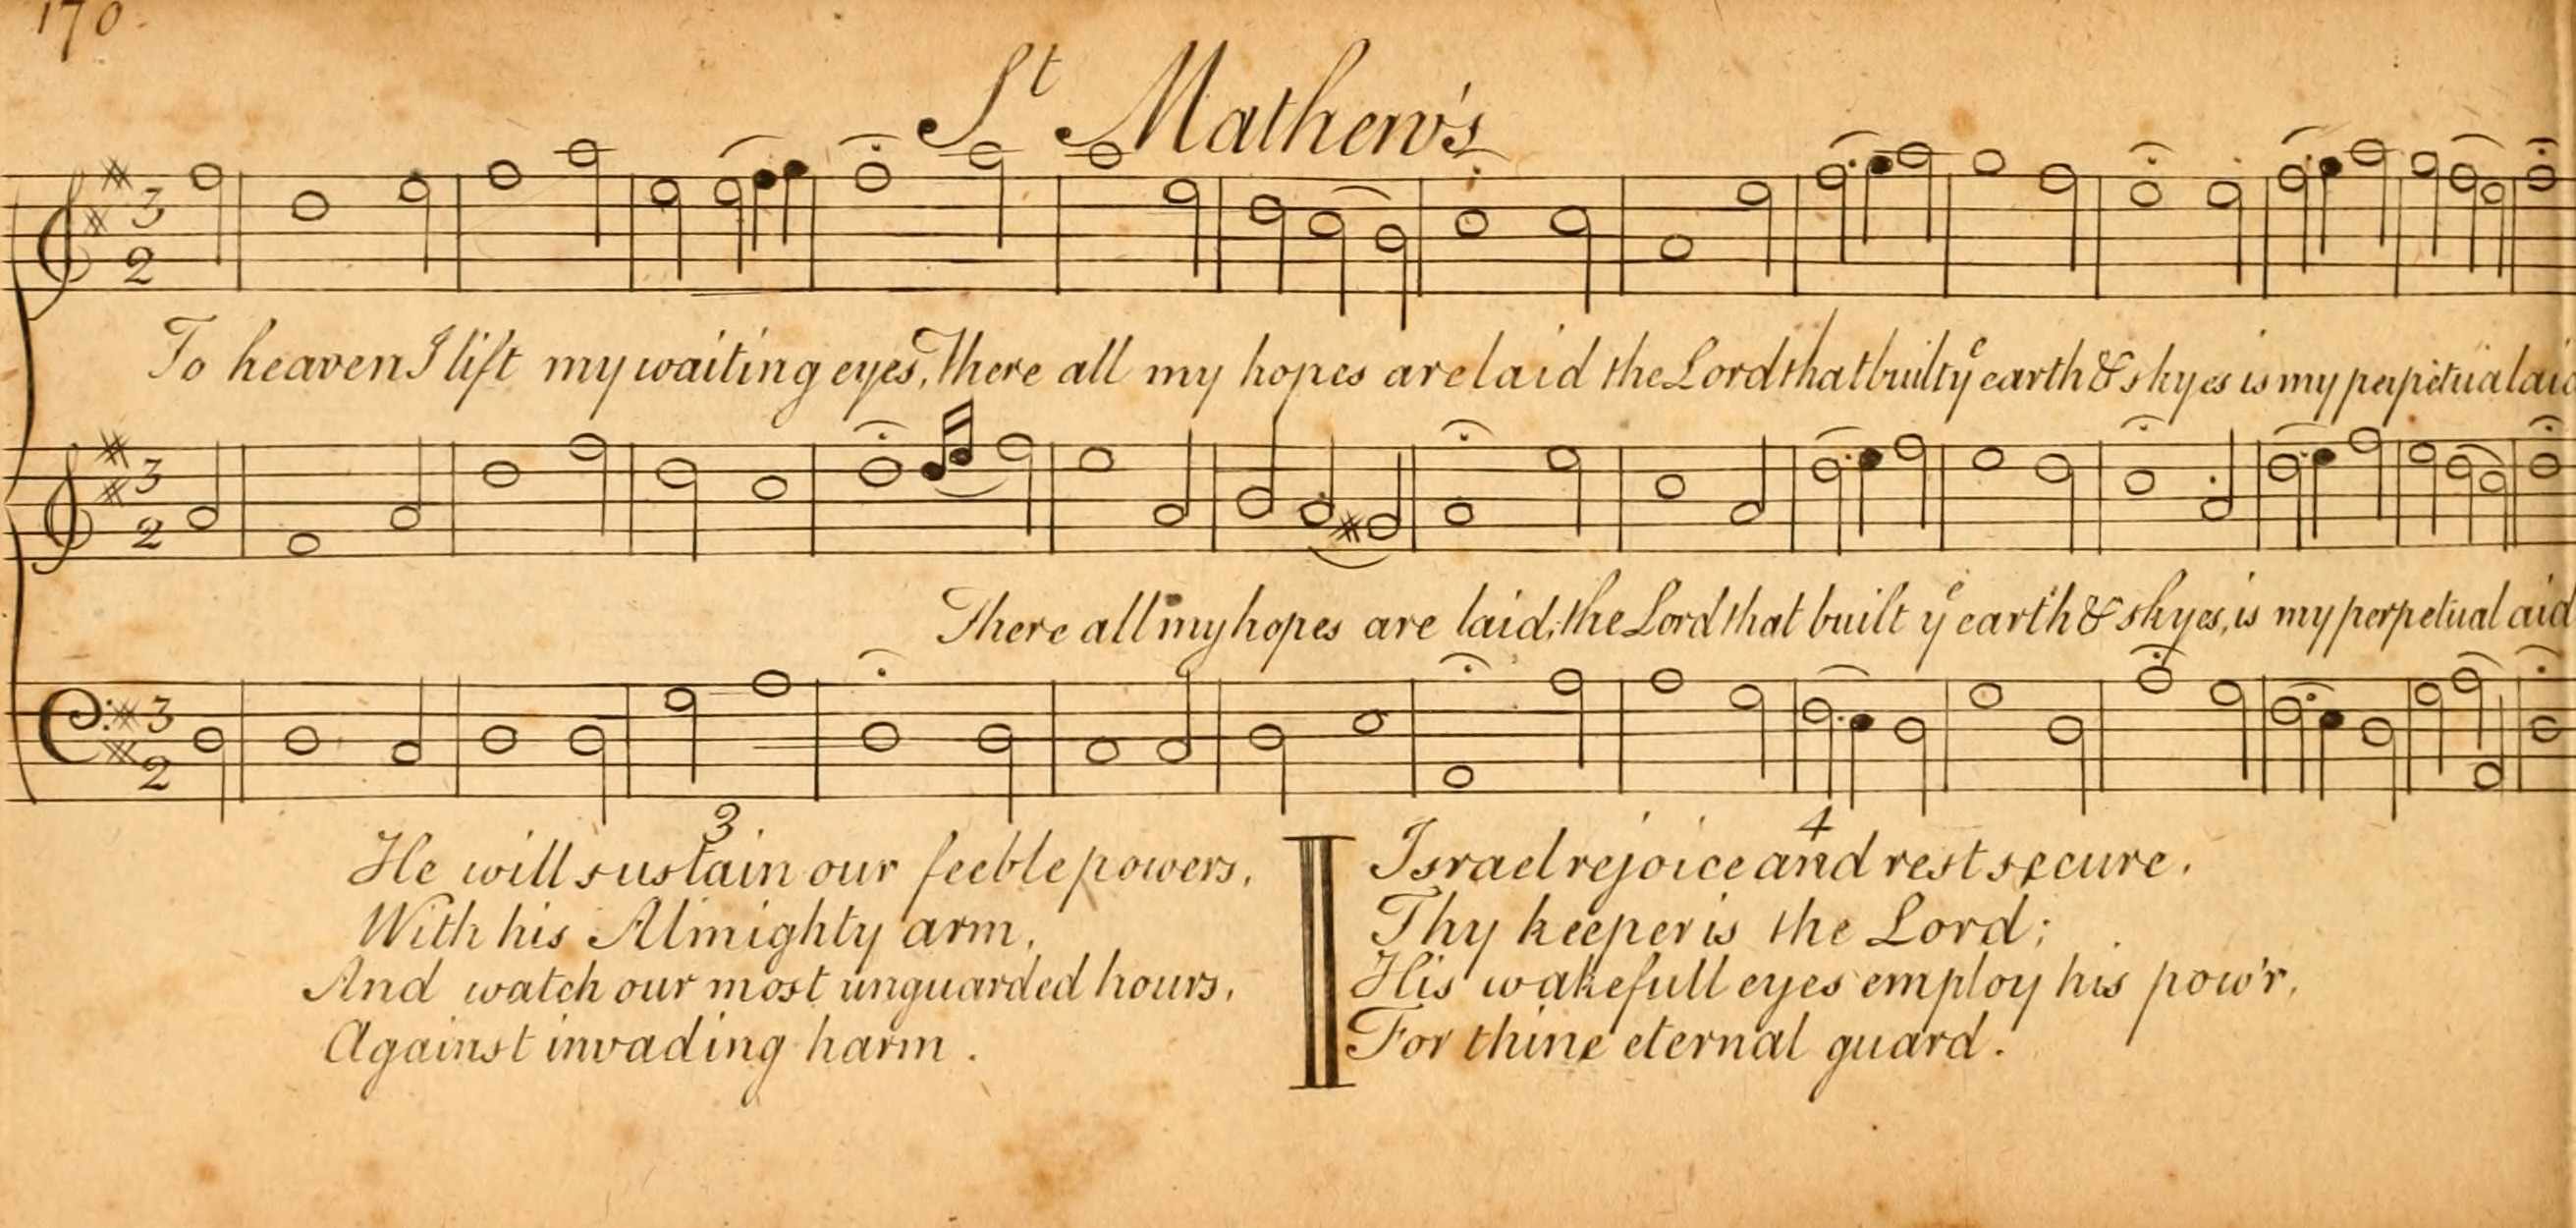 170
St Mathew's
3
2
To heaven I lift my waiting eyes, There all my hopes are laid the Lord that built ye earth & skyes is my perpetual aid
3
2
There all my hopes are laid, the Lord that built ye earth & skyes, is my perpetual aid
3
2
3
He will sustain our feeble powers,
With his Almighty arm,
And watch our most unguarded hours,
Against invading harm.
4
Israel rejoice and rest secure.
Thy keeper is the Lord;
His wakefull eyes employ his pow'r,
For thine eternal guard.